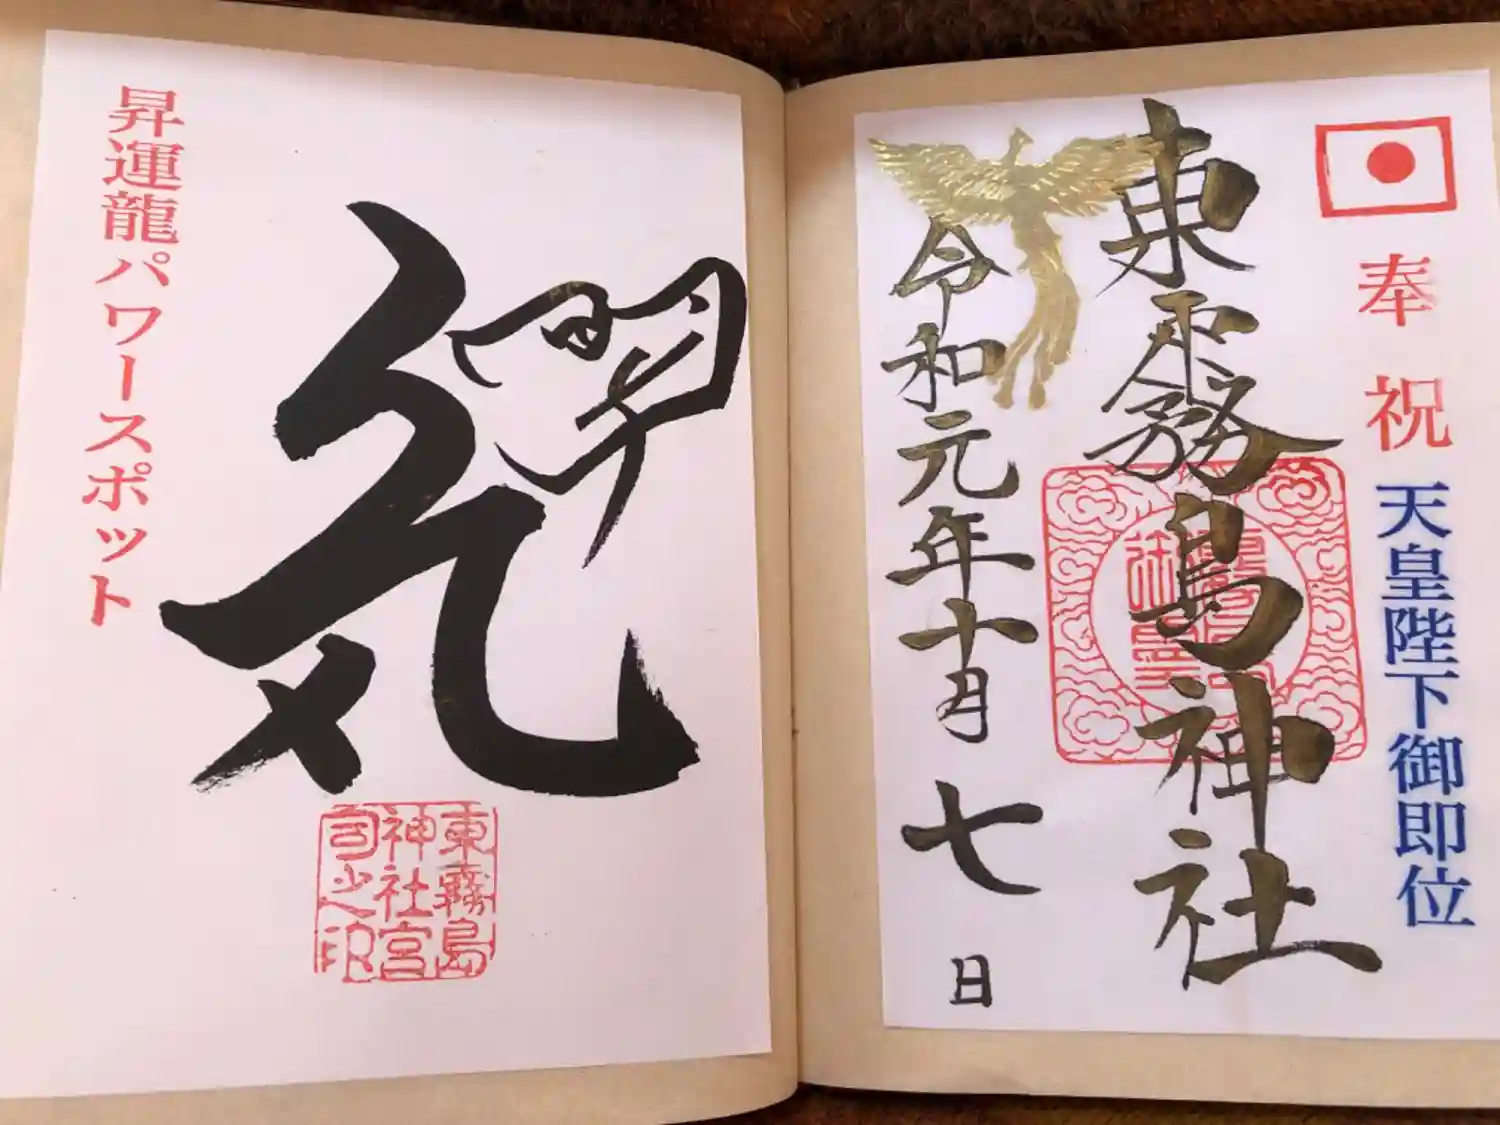 奉祝
天皇陛下御即位
東霧島神社
令和元年十月七日
昇運龍パワースポット
東霧島
神社宮
司之印